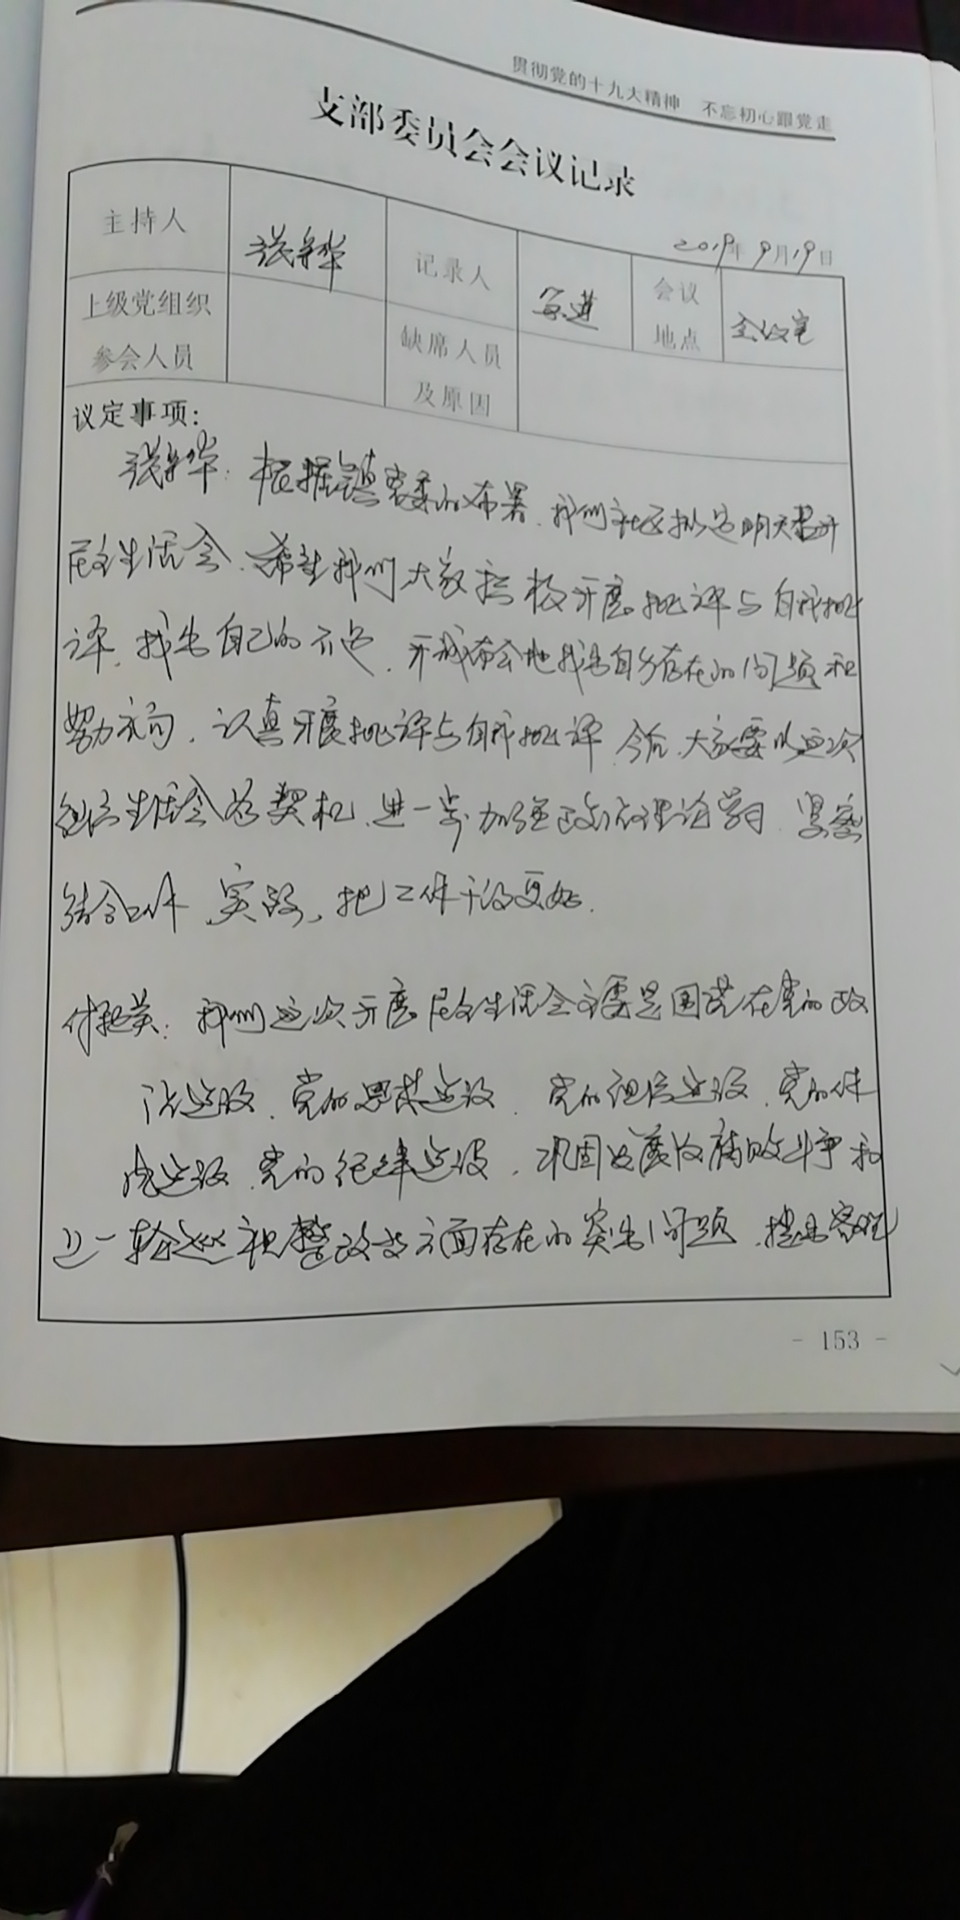 贯彻党的十九大精神 不忘初心跟党走
支部委员会会议记录
2019年9月19日
主持人 张 华 记录人 进 会议地点 会议室
上级党组织参会人员 缺席人员及原因
议定事项：
张 华：根据镇党委的布署，我们社区拟定明天召开
民主生活会，希望我们大家积极开展批评与自我批
评，找出自己的不足，开诚布公地找出自身存在的问题和
努力方向，认真开展批评与自我批评，今后，大家要以这次
组织生活会为契机，进一步加强政治理论学习，紧密
结合工作实际，把工作干得更好。
付 英：我们这次开展民主生活会主要是围绕在党的政
治建设、党的思想建设、党的组织建设、党的作
风建设、党的纪律建设，巩固发展反腐败斗争和
上一轮巡视整改等方面存在的突出问题，提出客观
- 153 -